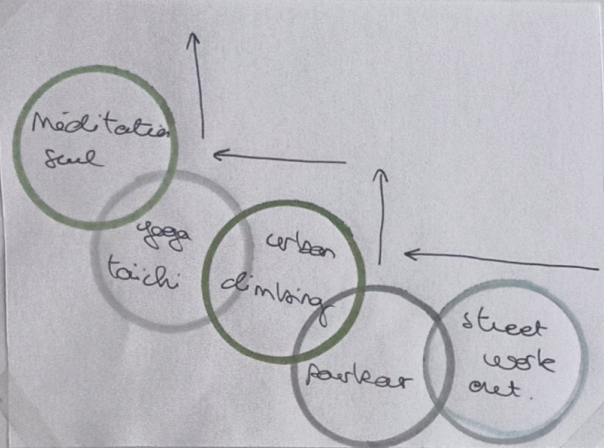 Méditation
seul
yoga
taichi
urban
climbing
parkour
street
work
out.